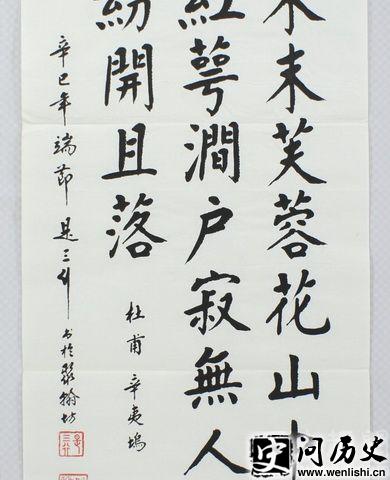 木末芙蓉花山
紅萼澗户寂無人
紛開且落
杜甫辛夷塢
辛巳年端節是三升书於翰坊
问历史
www.wenlishi.cn